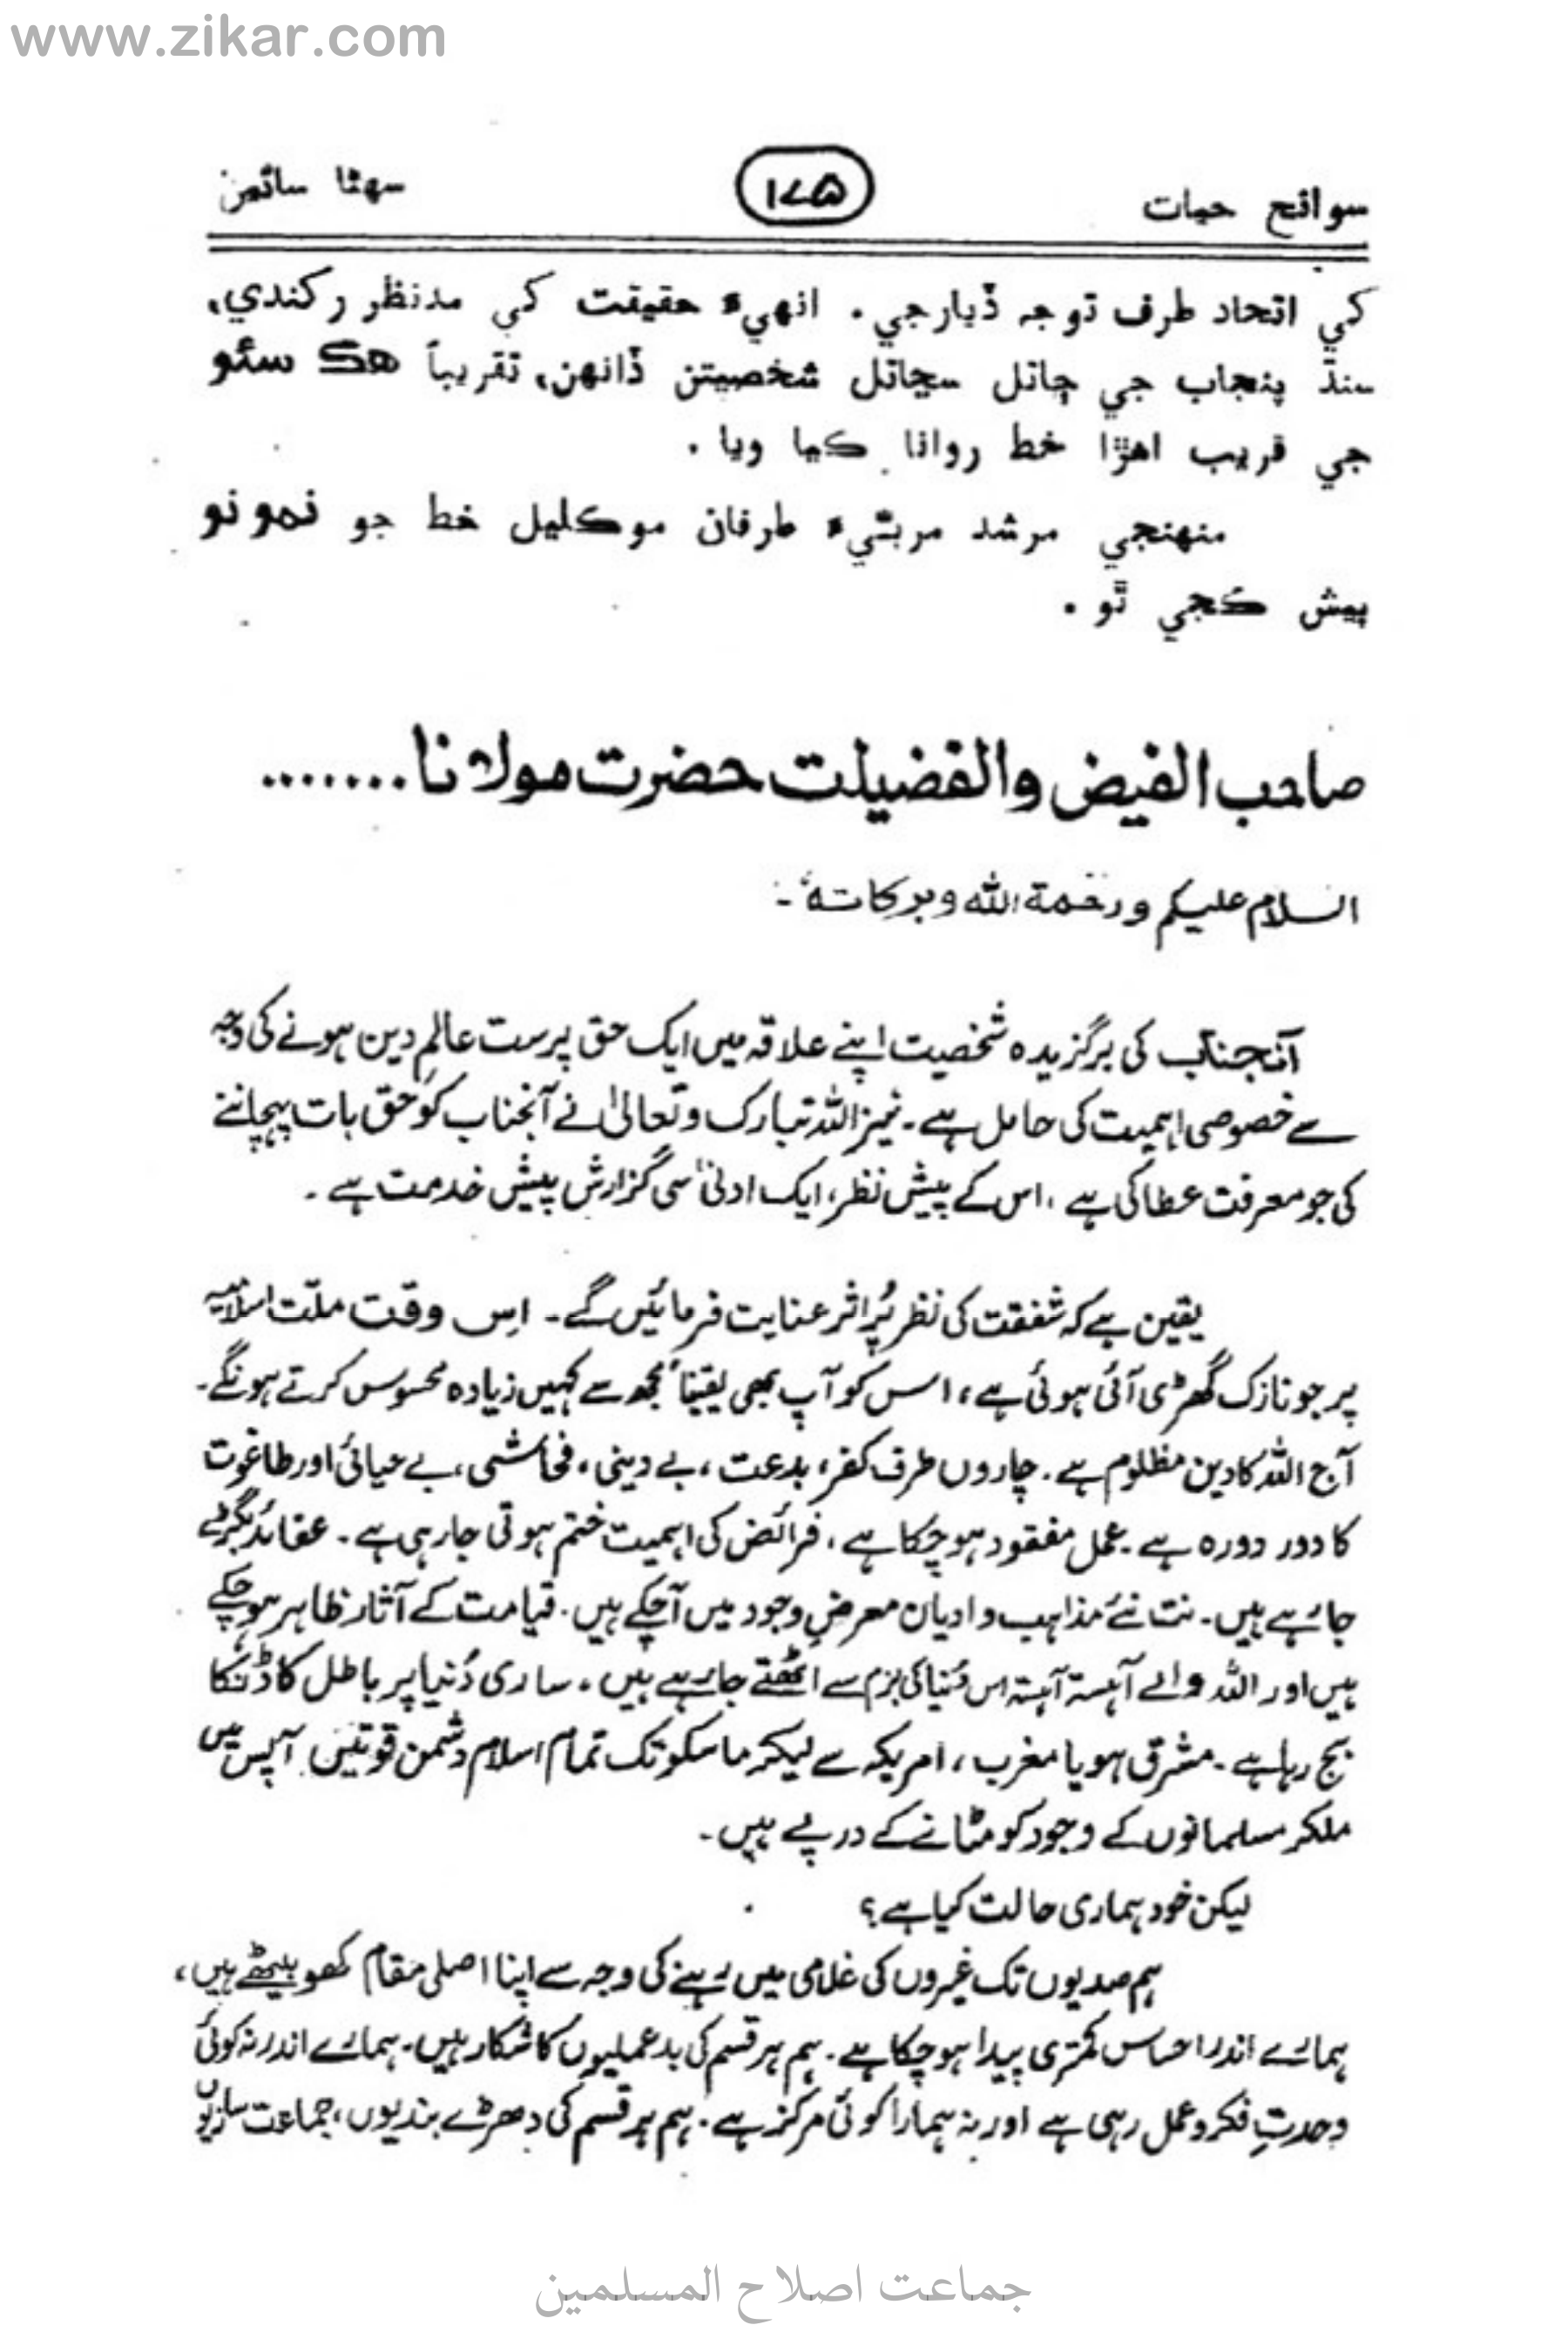 www.zikar.com
سوانح حيات ١٧۵ سهڻا سائين
کي اتحاد طرف توجه ڏيارجي. انهيءَ حقيقت کي مدنظر رکندي،
سنڌ پنجاب جي ڄاتل سڃاتل شخصيتن ڏانهن، تقريباً هڪ سئو
جي قريب اهڙا خط روانا ڪيا ويا.
منهنجي مرشد مربيءَ طرفان موڪليل خط جو نمونو
پيش ڪجي ٿو.
صاحب الفیض والفضیلت حضرت مولانا.......
السلام علیکم ورحمة الله وبرکاتہ۔
آنجناب کی برگزیدہ شخصیت اپنے علاقہ میں ایک حق پرست عالمِ دین ہونے کی وجہ
سے خصوصی اہمیت کی حامل ہے۔ نیز اللہ تبارک وتعالیٰ نے آنجناب کو حق بات پہچاننے
کی جو معرفت عطا کی ہے، اس کے پیش نظر، ایک ادنیٰ سی گزارش پیش خدمت ہے۔
یقین ہے کہ شفقت کی نظر پُر اثر عنایت فرمائیں گے۔ اس وقت ملّت اسلامیہ
پر جو نازک گھڑی آئی ہوئی ہے، اس کو آپ بھی یقیناً مجھ سے کہیں زیادہ محسوس کرتے ہونگے۔
آج اللہ کا دین مظلوم ہے۔ چاروں طرف کفر، بدعت، بے دینی، فحاشی، بے حیائی اور طاغوت
کا دور دورہ ہے۔ عمل مفقود ہو چکا ہے، فرائض کی اہمیت ختم ہوتی جا رہی ہے۔ عقائد بگڑتے
جا رہے ہیں۔ نت نئے مذاہب و ادیان معرضِ وجود میں آچکے ہیں۔ قیامت کے آثار ظاہر ہو چکے
ہیں اور اللہ والے آہستہ آہستہ اس دُنیا کی بزم سے اٹھتے جا رہے ہیں۔ ساری دُنیا پر باطل کا ڈنکا
بج رہا ہے۔ مشرق ہو یا مغرب، امریکہ سے لیکر ماسکو تک تمام اسلام دشمن قوتیں آپس میں
ملکر مسلمانوں کے وجود کو مٹانے کے درپے ہیں۔
لیکن خود ہماری حالت کیا ہے؟
ہم صدیوں تک غیروں کی غلامی میں رہنے کی وجہ سے اپنا اصلی مقام کھو بیٹھے ہیں،
ہمارے اندر احساس کمتری پیدا ہو چکا ہے۔ ہم ہر قسم کی بدعملیوں کا شکار ہیں۔ ہمارے اندر نہ کوئی
وحدتِ فکر و عمل رہی ہے اور نہ ہمارا کوئی مرکز ہے۔ ہم ہر قسم کی دھڑے بندیوں، جماعت سازیوں
جماعت اصلاح المسلمین